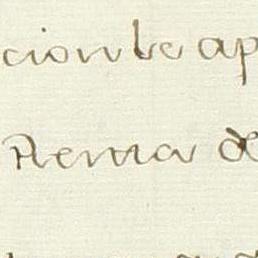 cion le ap
Rema de